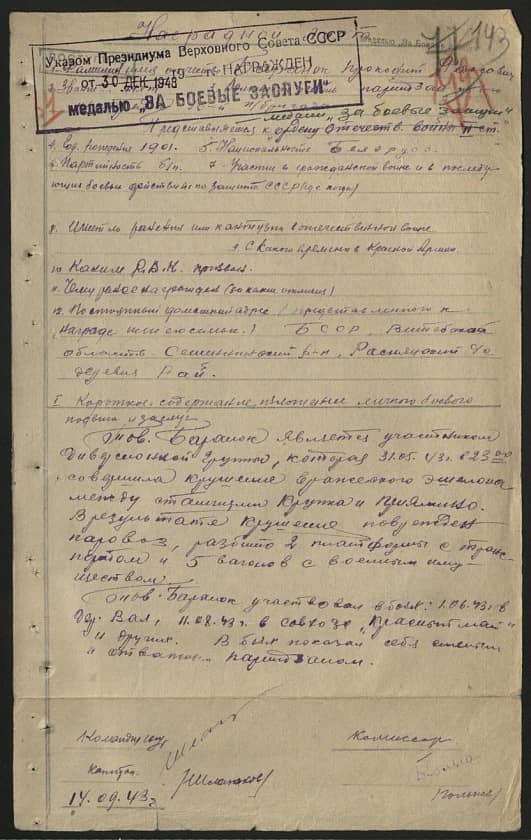 Наградной лист
143
Указом Президиума Верховного Совета СССР
от 30 ДЕК 1948 19 г. НАГРАЖДЕН
медалью „ЗА БОЕВЫЕ ЗАСЛУГИ"
Прокофий
медали „За боевые заслуги"
Представляется к ордену Отечеств. войны II ст.
4. Год рождения 1901. 5. Национальность Белорус.
6. Партийность б/п. 7. Участие в гражданской войне и в последу-
ющих боевых действиях по защите СССР (где когда)
8. Имеет ли ранения или контузии в отечественной войне
9. С какого времени в Красной Армии
10. Каким Р.В.К. призван.
11. Чем ранее награжден (за какие отличия)
12. Постоянный домашний адрес (представленного к
награде или его семьи.) БССР, Витебская
область р-н,
деревня Рай.
I Короткое содержание, изложение личного боевого
подвига и заслуг
Тов. Баранок является участником
диверсионной группы, которая 31.05.43 г. в 23 00
совершила крушение вражеского эшелона
между станциями Крупка и Приямино.
В результате крушения поврежден
паровоз, разбито 2 платформы с транс-
портом и 5 вагонов с военным иму-
ществом
Тов. Баранок участвовал в боях: 1.06.43 г. в
дер. 11.08.43 г. в совхозе „Красный май"
и других. В боях показал себя смелым
и отважн. партизаном.
Командир
Комиссар
Капитан
14.09.43 г.